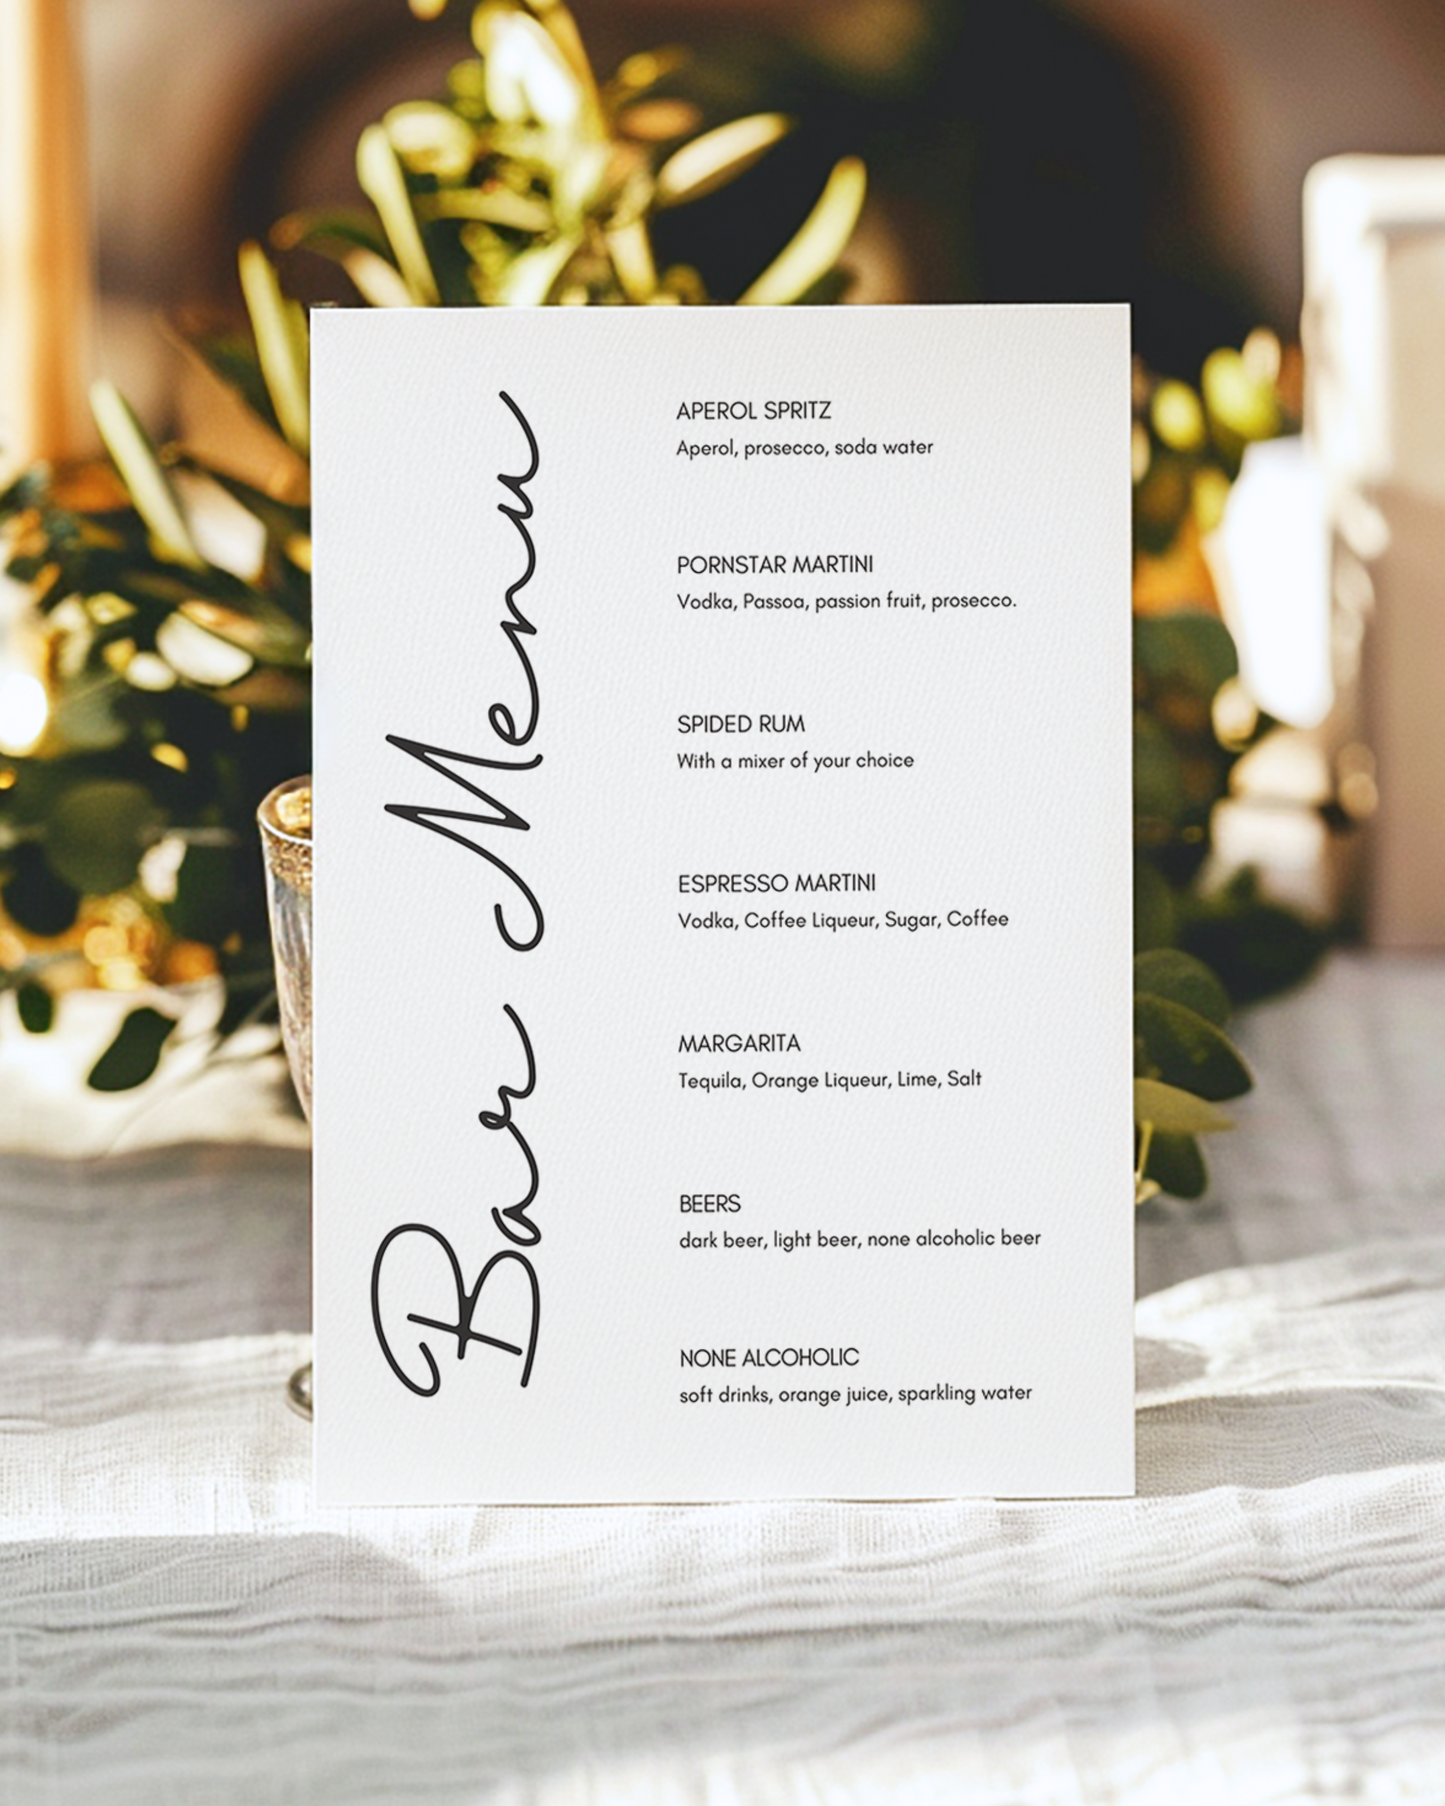 Bar Menu
APEROL SPRITZ
Aperol, prosecco, soda water
PORNSTAR MARTINI
Vodka, Passoa, passion fruit, prosecco.
SPIDED RUM
With a mixer of your choice
ESPRESSO MARTINI
Vodka, Coffee Liqueur, Sugar, Coffee
MARGARITA
Tequila, Orange Liqueur, Lime, Salt
BEERS
dark beer, light beer, none alcoholic beer
NONE ALCOHOLIC
soft drinks, orange juice, sparkling water